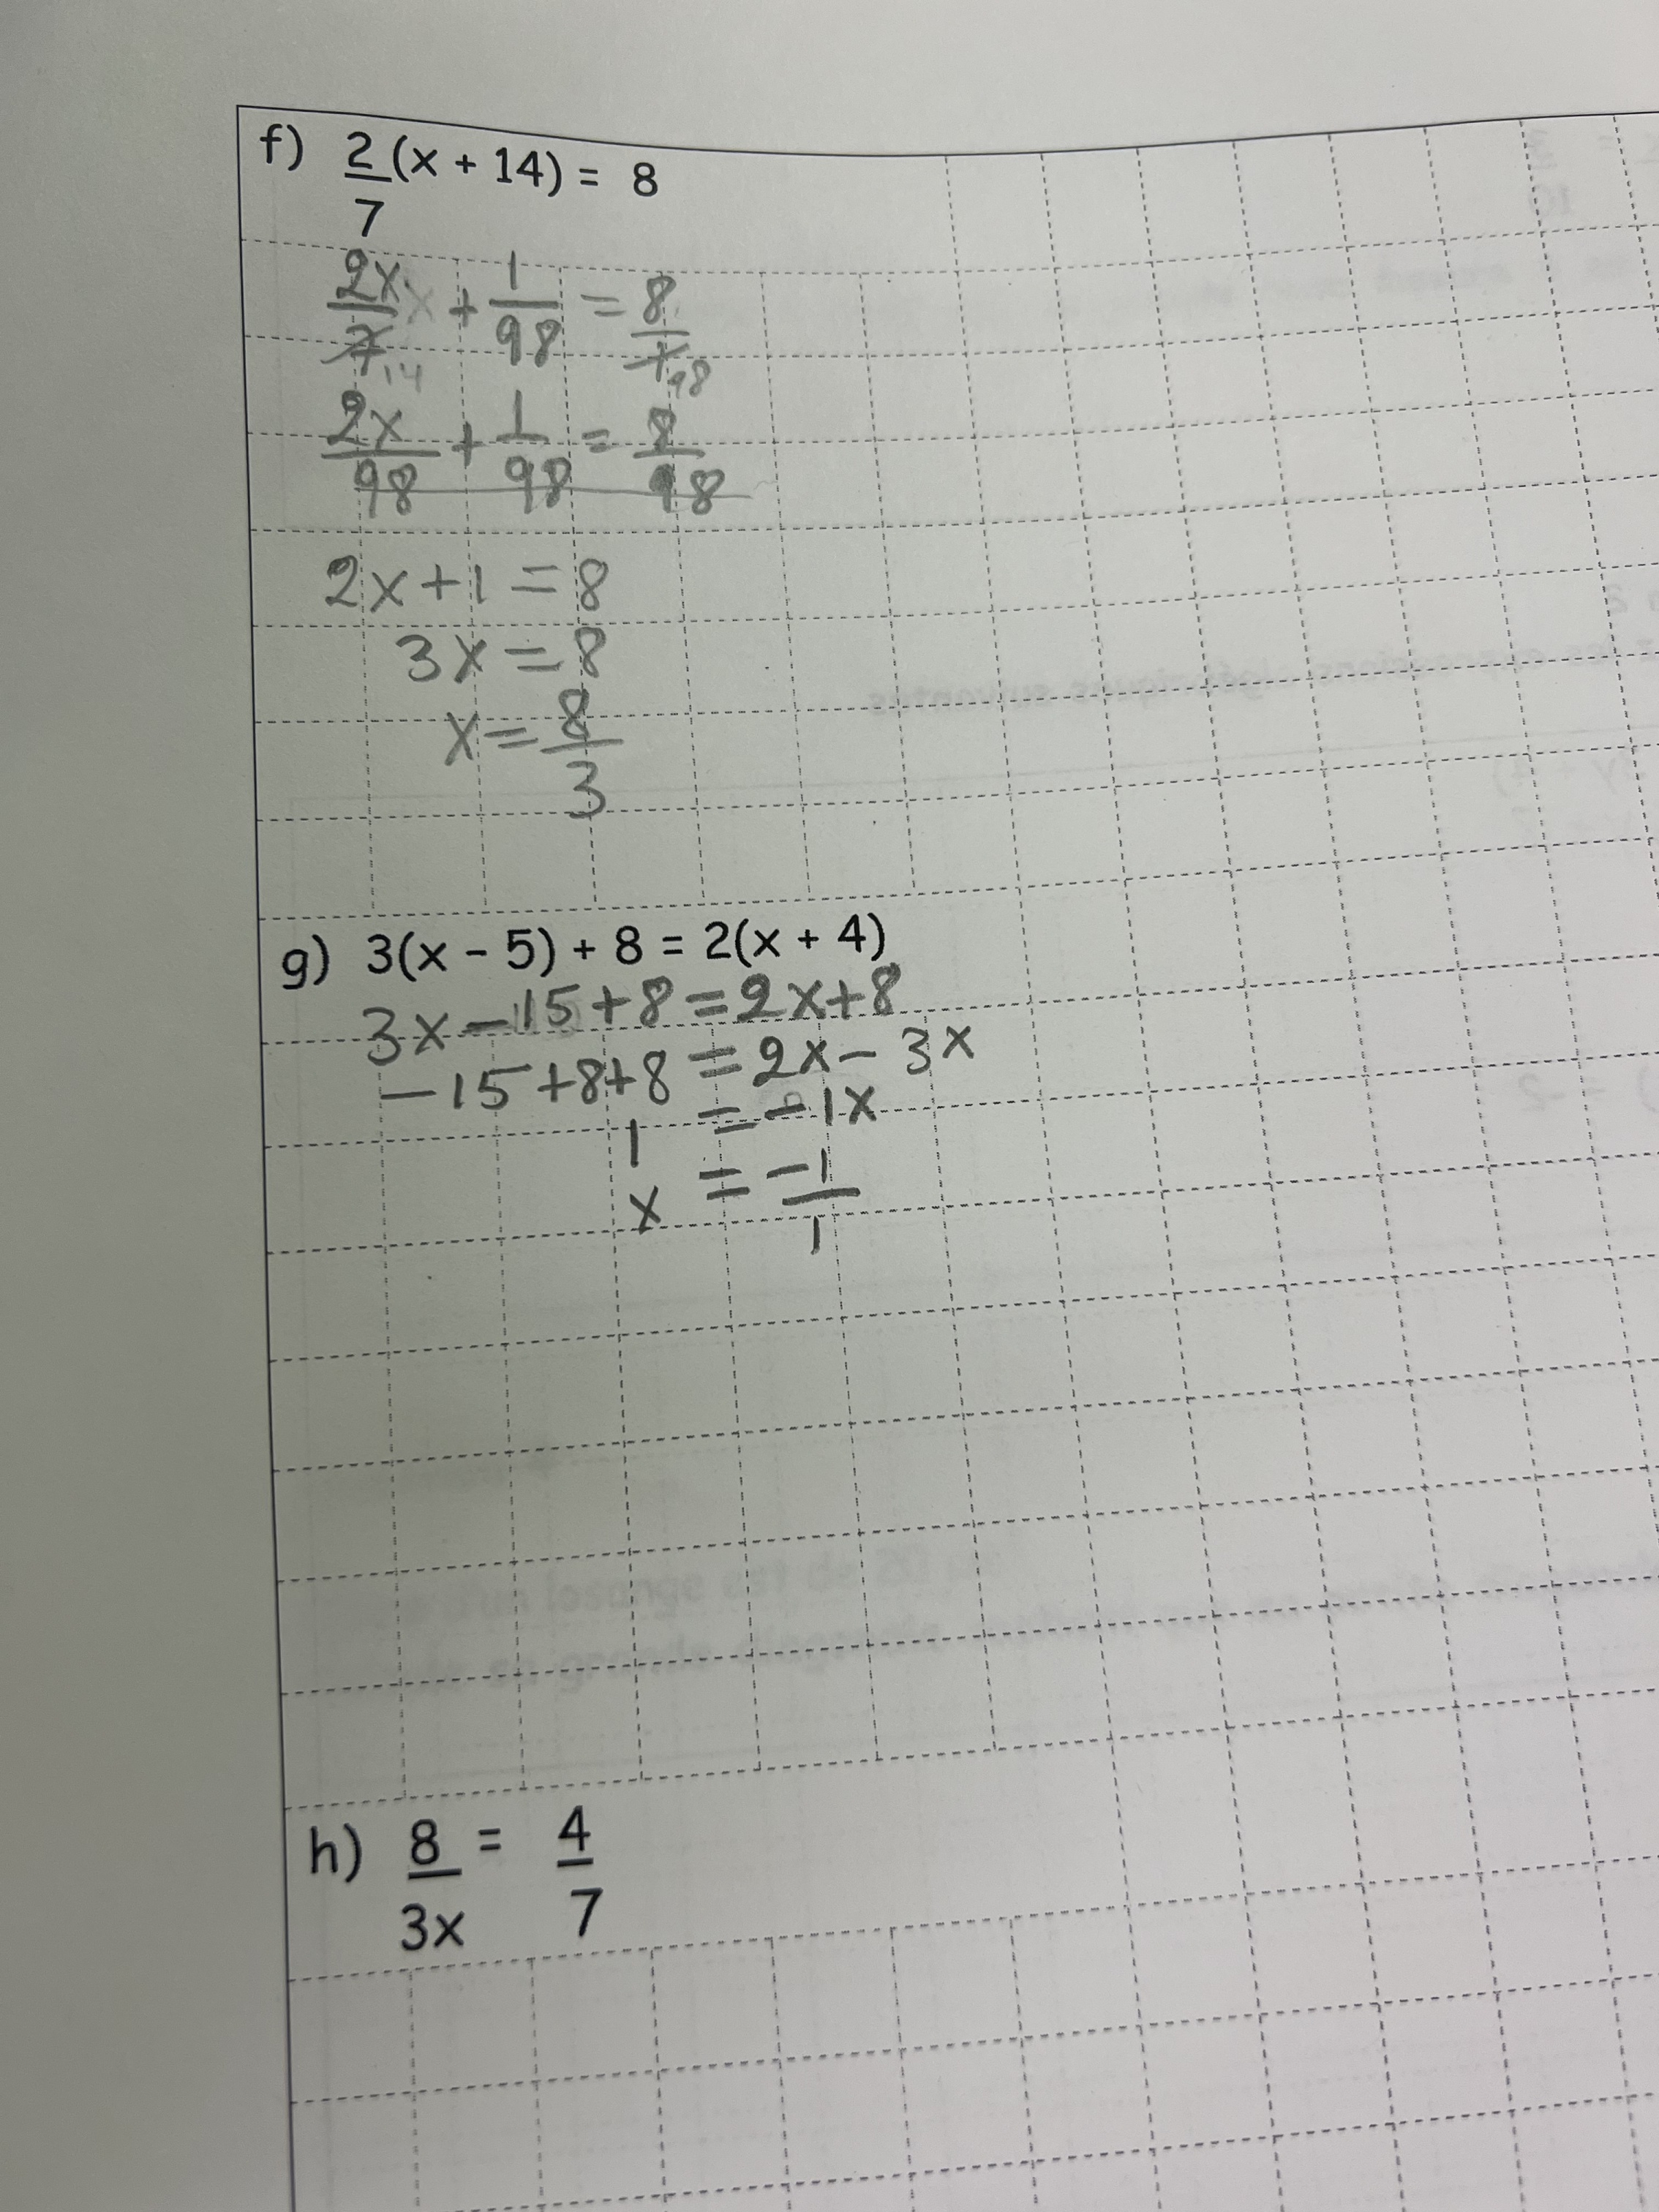 f) 2/7 (x + 14) = 8
2x/7 + 1/98 = 8/1
14 98
2x/98 + 1/98 = 8/98
2x + 1 = 8
3x = 8
x = 8/3
g) 3(x - 5) + 8 = 2(x + 4)
3x - 15 + 8 = 2x + 8
-15 + 8 + 8 = 2x - 3x
1 = -1x
x = -1/1
h) 8/3x = 4/7